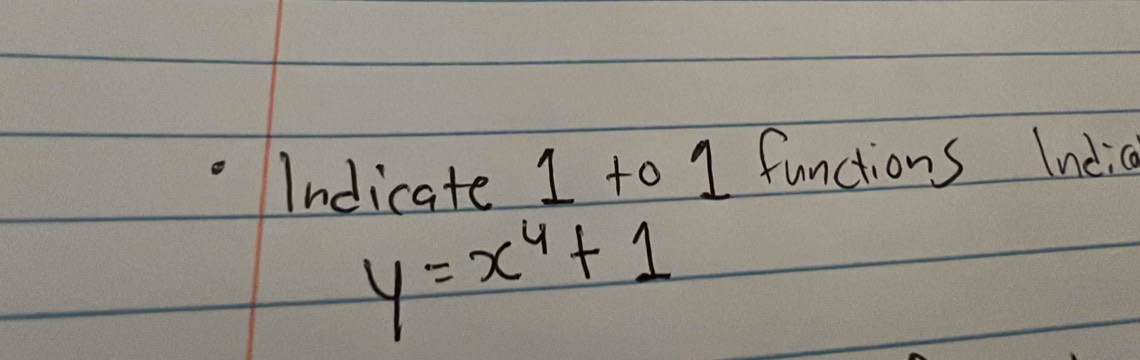 • Indicate 1 to 1 functions
y = x⁴ + 1